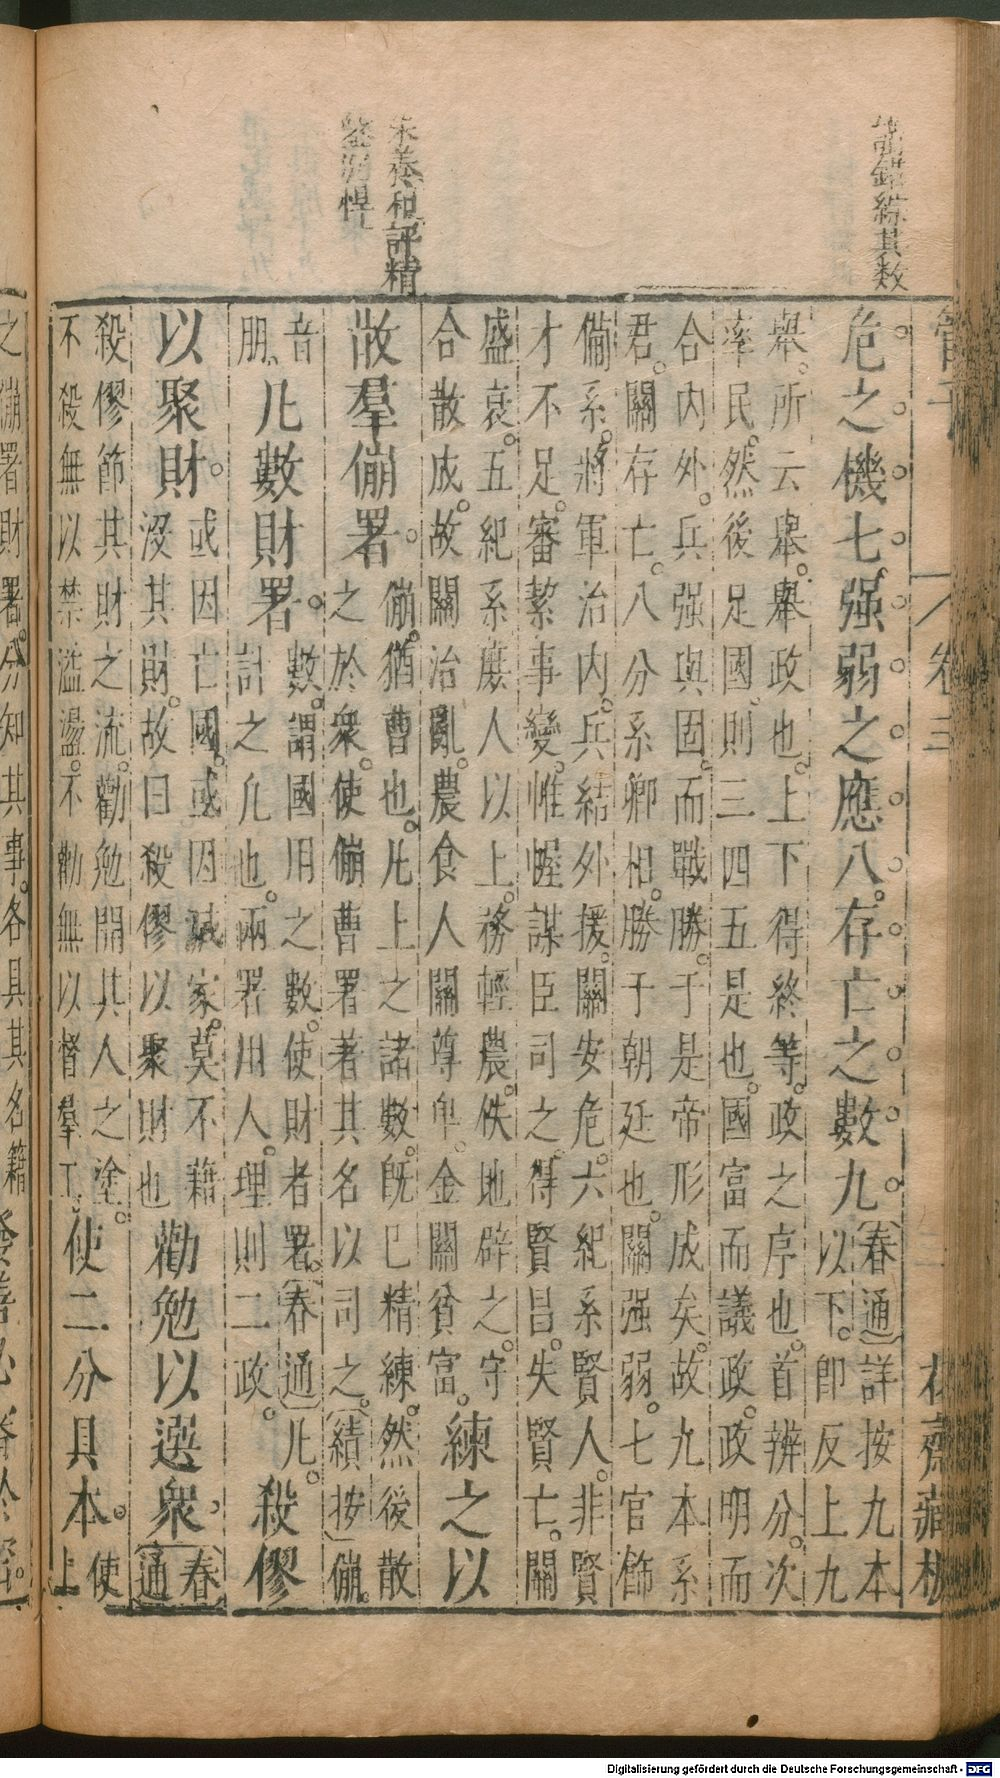 可錯綜其数
朱養和評精
沉悍
管子 卷三 花齋藏板
危之機七强弱之應八。存亡之數九。(春通)詳按九本
以下。即反上九
舉。所云舉。舉政也。上下得終等。政之序也。首辨分。次
率民。然後足國。則三四五是也。國富而議政。政明而
合内外。兵强與固。而戰勝。于是帝形成矣。故九本系
君。關存亡。八分系卿相。勝于朝廷也。關强弱。七官飾
備系。將軍治内。兵結外援。關安危。六紀系賢人。非賢
才不足。審絜事變。帷幄謀臣司之。得賢昌。失賢亡。關
盛衰。五紀系庶人以上。務輕農。佚地辟之。守
合散成。故關治亂。農食人關尊卑。金關貧富。練之以
散羣傰署。傰。猶曹也。凡上之諸數。旣已精練。然後散
之於衆。使傰曹署著其名以司之。(績按)傰。
音
朋。凡數財署。數。謂國用之數。使財者署。(春通)凡。
計之凡也。兩署用人。理則二政。殺僇
以聚財。或因亡國。或因誠家。莫不藉
沒其財。故曰殺僇以聚財也 勸勉以選衆。(春通)
殺僇節其財之流。勸勉開其人之塗。
不殺無以禁溢盪。不勸無以督羣工。使二分具本。使
上
之傰署財署。分知其事。各具其名籍 發善必審於密。
Digitalisierung gefördert durch die Deutsche Forschungsgemeinschaft - DFG